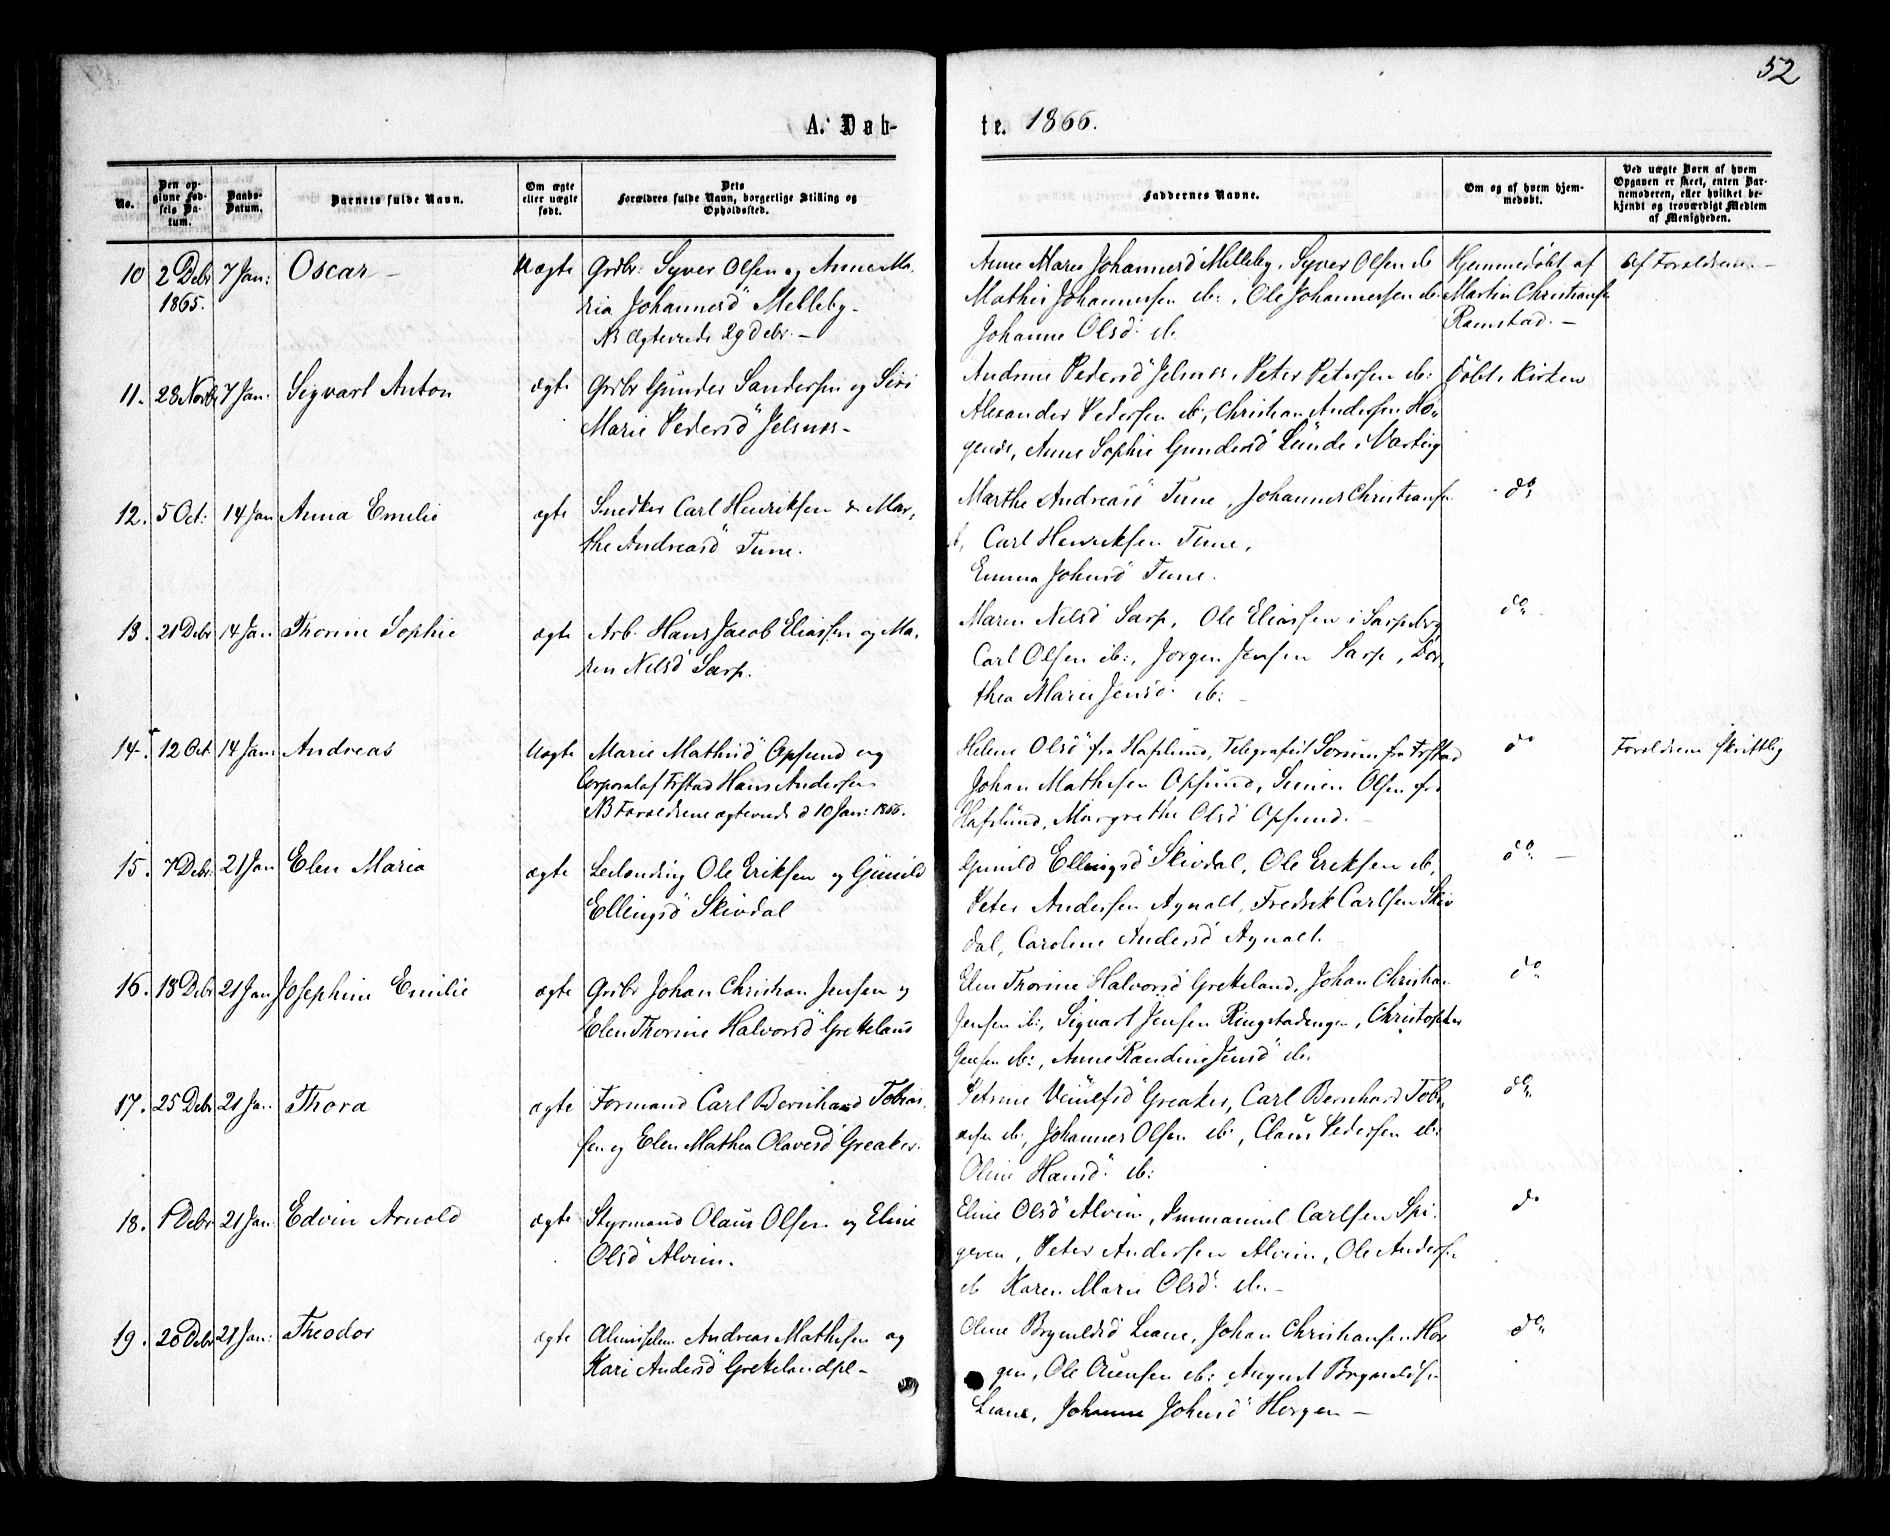 52
A. Døb-
te. 1866.
No.
Den op-
givne Fød-
sels Da-
tum.
Daabs-
Datum.
Barnets fulde Navn.
Om ægte
eller uægte
født.
Dets
Forældres fulde Navn, borgerlige Stilling og
Opholdssted.
Faddernes Navne.
Om og af hvem hjem-
medøbt.
Ved uægte Børn af hvem
Opgaven er skeet, enten Bar-
nemoderen, eller hvilket be-
kjendt og troværdigt Medlem
af Menigheden.
10 2 Debr 7 Jan: Oscar – Uægte Grdbr: Syver Olsen og Anne Ma-
1865.
ria Johannesd" Melleby -
NB Ægteviede 29 Debr. –
Anne Maria Johannesd Melleby, Syver Olsen ib
Mathis Johannesen ib:, Ole Johannesen ib.
Johanne Olsd: ib.
Hjemmedøbt af
Martin Christiansen
Ramstad. –
Af Forældrene. –
11. 28 Novbr 7 Jan: Sigvart Anton ægte Grdbr Gunder Sandersen og Siri
Marie Pedersd" Jelsnes -
Andrine Pedersd" Jelsnes, Peter Petersen ib:
Alexander Pedersen ib:, Christian Andersen Ho-
gende, Anne Sophie Gundersd Lunde i Varteig
Døbt i Kirken
12. 5 Oct: 14 Jan Anna Emilie ægte Snedker Carl Henriksen & Mar-
the Andreasd" Tune.
Marthe Andreasd" Tune, Johannes Christiansen
ib, Carl Henriksen Tune,
Emma Johnsd" Tune.
do
13. 21 Debr 14 Jan Thorine Sophie ægte Arb. Hans Jacob Eliassen og Ma-
ren Nilsd Sarp.
Maren Nilsd Sarp, Ole Eliassen i Sarpsborg
Carl Olsen ib:, Jørgen Jensen Sarp, Dor-
thea Marie Jensd: ib: -
do
14. 12 Oct 14 Jan: Andreas Uægte Marie Mathisd" Opsund og
Corporal af Frstad Hans Andersen
NB Forældrene ægteviede d 10 Jan: 1866.
Helene Olsd" fra Hafslund, Telegrafist Sørum fra Frstad
Johan Mathisen Opsund, Simen Olsen fra
Hafslund, Margrethe Olsd Opsund. -
do
Forældrene skriftlig
15. 7 Debr: 21 Jan Elen Maria ægte Leilending Ole Eriksen og Gunild
Ellingsd" Skivdal
Gunild Ellingsd" Skivdal, Ole Eriksen ib,
Peter Andersen Agnalt, Fredrik Carlsen Skiv
dal, Caroline Andersd Agnalt.
do –
16. 18 Debr 21 Jan Josephine Emilie ægte Grdbr Johan Christian Jensen og
Elen Thorine Halvorsd" Grekeland
Elen Thorine Halvorsd Grekeland, Johan Christian
Jensen ib:, Sigvart Jensen Ringstadengen, Christopher
Jensen ib:, Anne Randine Jensd" ib.
do
17. 25 Debr 21 Jan. Thora ægte Formand Carl Bernhard Tobias-
sen og Elen Mathea Olavesd Greaker.
Petrine Greaker, Carl Bernhard Tobi-
asen ib, Johannes Olsen ib:, Claus Pedersen ib:
Oline Hansd" ib:
do
18. 1 Debr 21 Jan Edvin Arnold ægte Styrmand Olaus Olsen og Eline
Olsd" Alvim.
Eline Olsd" Alvim, Immanuel Carlsen Spi-
geren, Peter Andersen Alvim, Ole Andersen
ib Karen Marie Olsd: ib. -
do
19. 20 Debr 21 Jan: Theodor ægte Andreas Mathisen og
Kari Andersd" Grekelandpl -
Oline Brynildsd Leane, Johan Christiansen Hor
gen, Ole ib: August Brynildsen
Leane, Johanne Johnsd" Horgen –
do